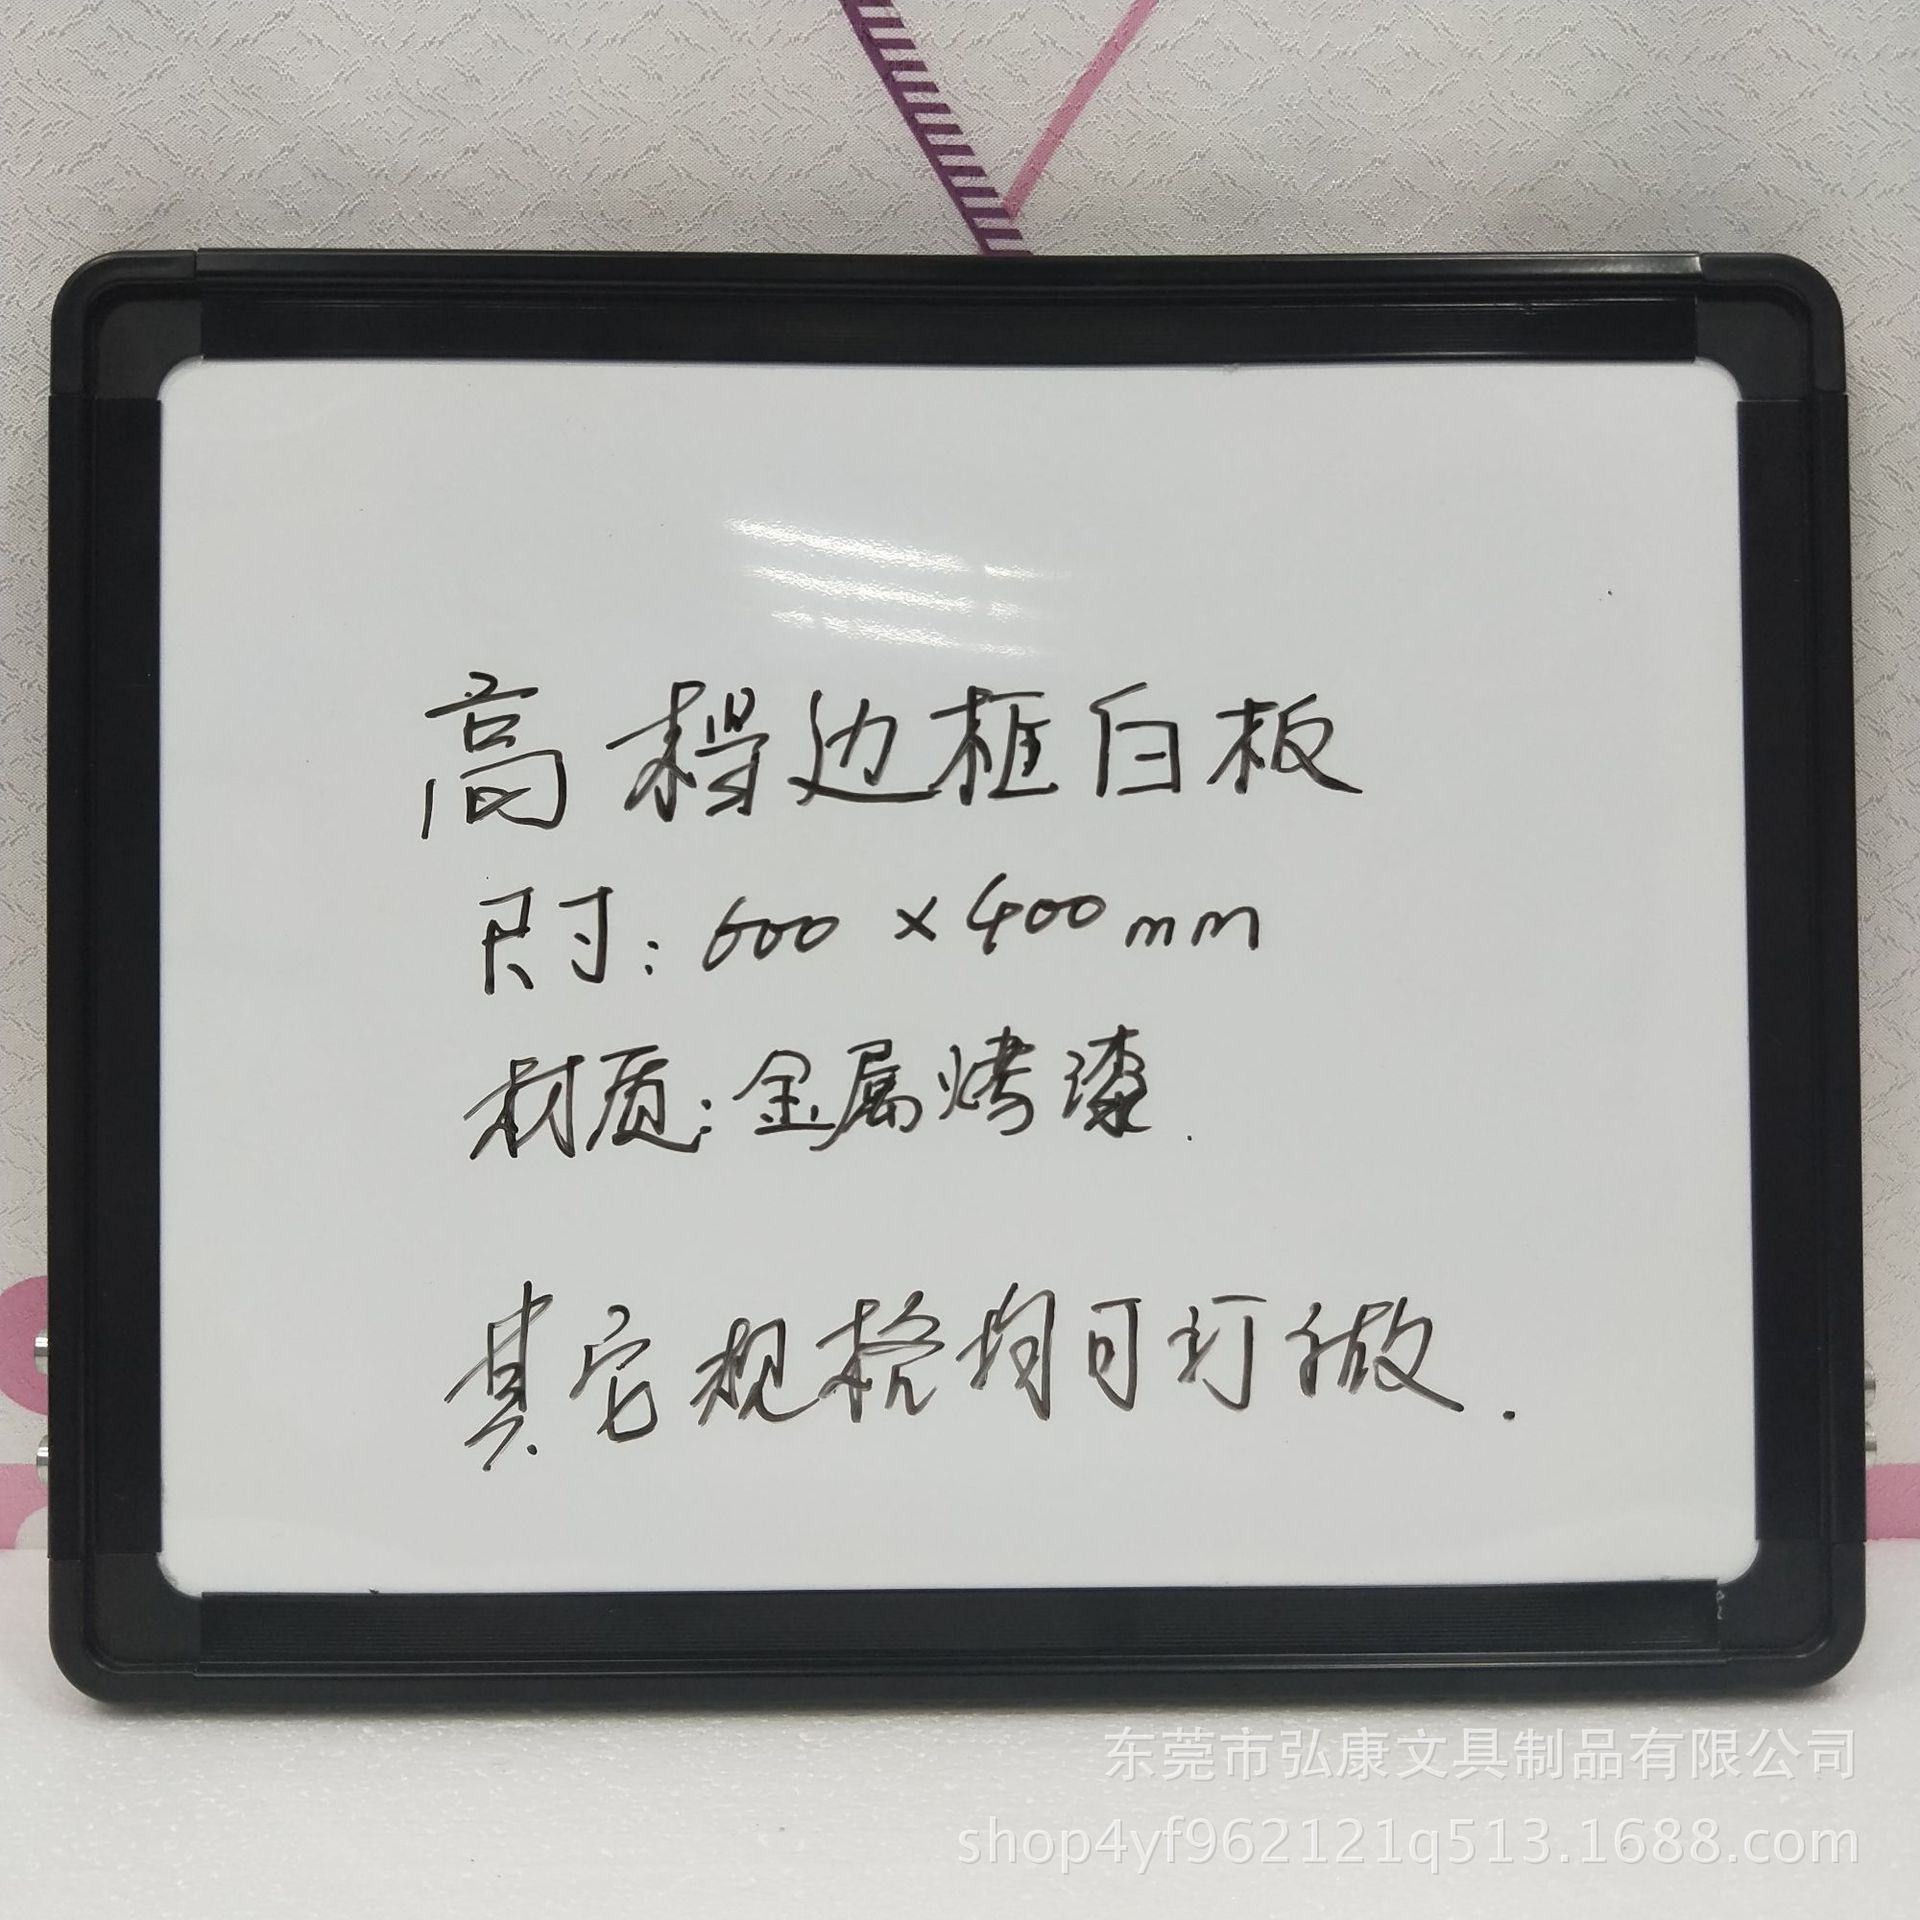 高档边框白板
尺寸:600×400mm
材质:金属烤漆.
其它规格均可订做.
东莞市弘康文具制品有限公司
shop4yf962121q513.1688.com